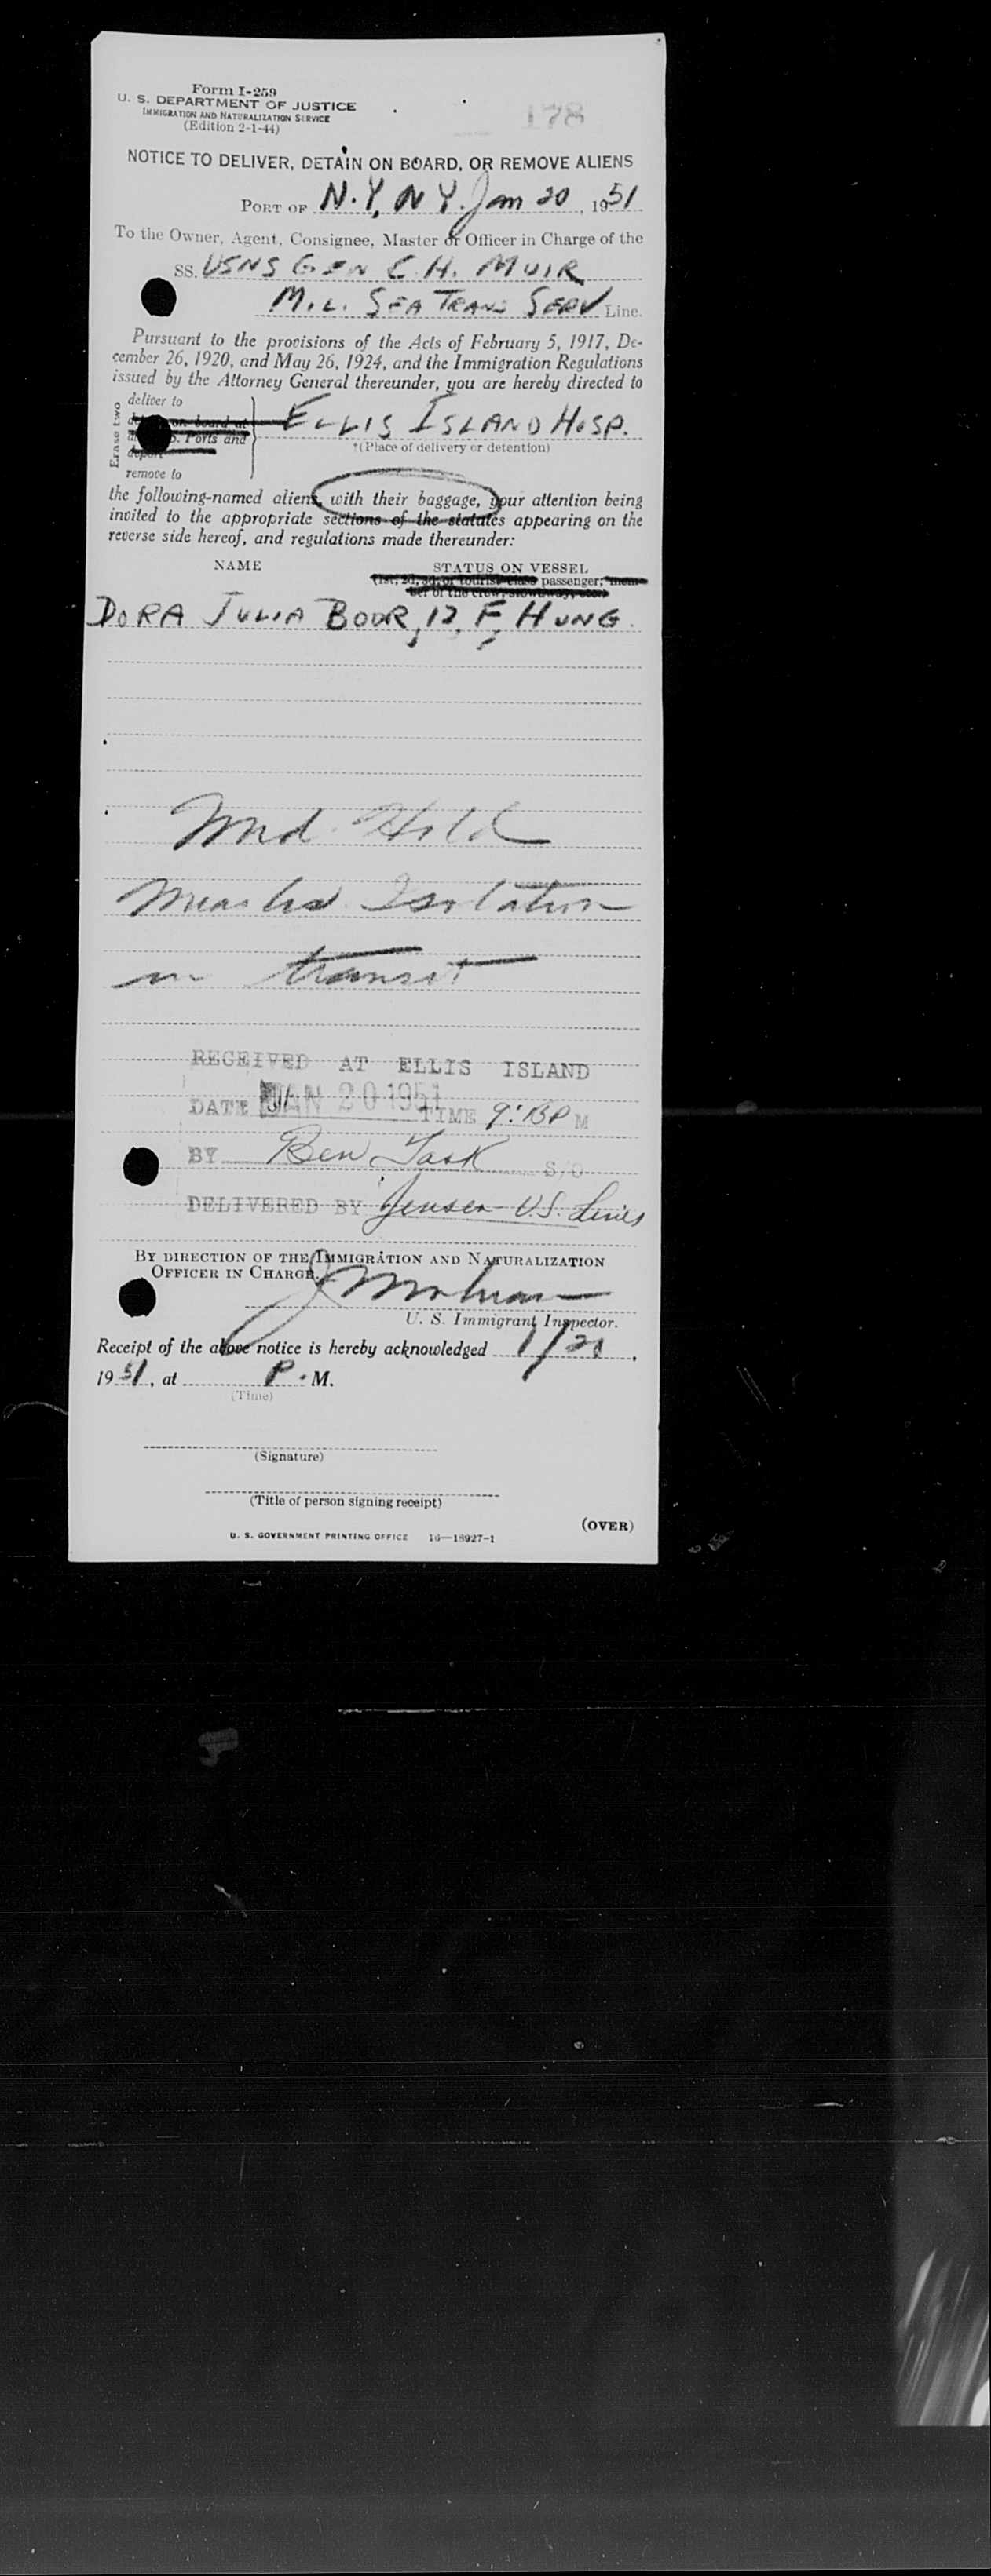 Form I-259
U. S. DEPARTMENT OF JUSTICE
IMMIGRATION AND NATURALIZATION SERVICE
(Edition 2-1-44)
178
NOTICE TO DELIVER, DETAIN ON BOARD, OR REMOVE ALIENS
PORT OF N.Y, N Y. Jan 20, 1951
To the Owner, Agent, Consignee, Master or Officer in Charge of the
SS. USNS GEN C. H. MUIR
MIL. SEA TRANS SERV Line.
Pursuant to the provisions of the Acts of February 5, 1917, De-
cember 26, 1920, and May 26, 1924, and the Immigration Regulations
issued by the Attorney General thereunder, you are hereby directed to
Erase two
deliver to
on board at
Ports and
ELLIS ISLAND HOSP.
†(Place of delivery or detention)
remove to
the following-named aliens, with their baggage, your attention being
invited to the appropriate sections of the statutes appearing on the
reverse side hereof, and regulations made thereunder:
NAME STATUS ON VESSEL
(1st, 2d, 3d, or tourist class passenger; mem-
ber of the crew, stowaway, etc.)
DORA JULIA BOOR, 12, F, HUNG.
Med. Hold
Measles Isolation
in transit
RECEIVED AT ELLIS ISLAND
DATE JAN 20 1951 TIME P M
BY Ben S/O
DELIVERED BY Jensen U.S. Lines
BY DIRECTION OF THE IMMIGRATION AND NATURALIZATION
OFFICER IN CHARGE.
U. S. Immigrant Inspector.
Receipt of the above notice is hereby acknowledged 1/20,
1951, at P. M.
(Time)
(Signature)
(Title of person signing receipt)
(OVER)
U. S. GOVERNMENT PRINTING OFFICE 16—18927-1